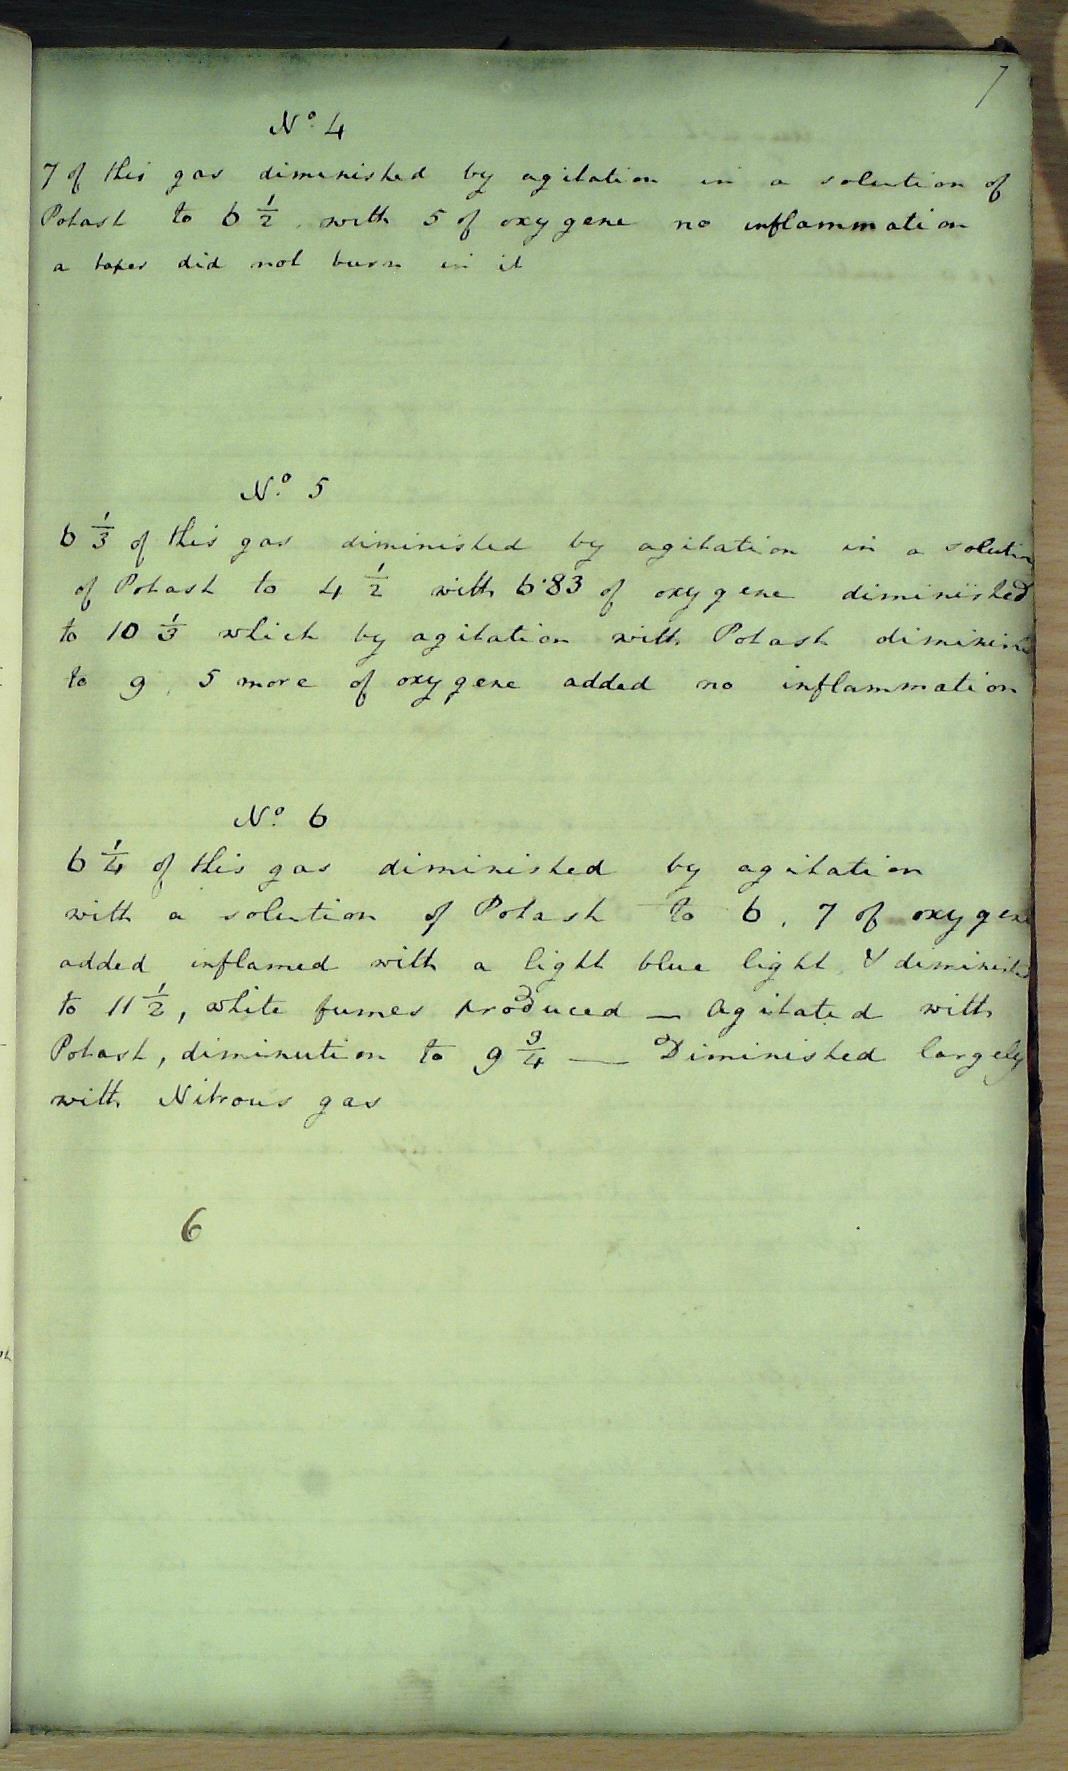 7
No. 4
7 of this gas diminished by agitation in a solution of
Potash to 6 1/2. with 5 of oxygene no inflammation
a taper did not burn in it
No. 5
6 1/3 of this gas diminished by agitation in a solution
of Potash to 4 1/2 with 6·83 of oxygene diminished
to 10 1/3 which by agitation with Potash diminish
to 9. 5 more of oxygene added no inflammation
No. 6
6 1/4 of this gas diminished by agitation
with a solution of Potash to 6. 7 of oxygene
added inflamed with a light blue light & diminished
to 11 1/2, white fumes produced — agitated with
Potash, diminution to 9 3/4 — Diminished largely
with Nitrous gas
6